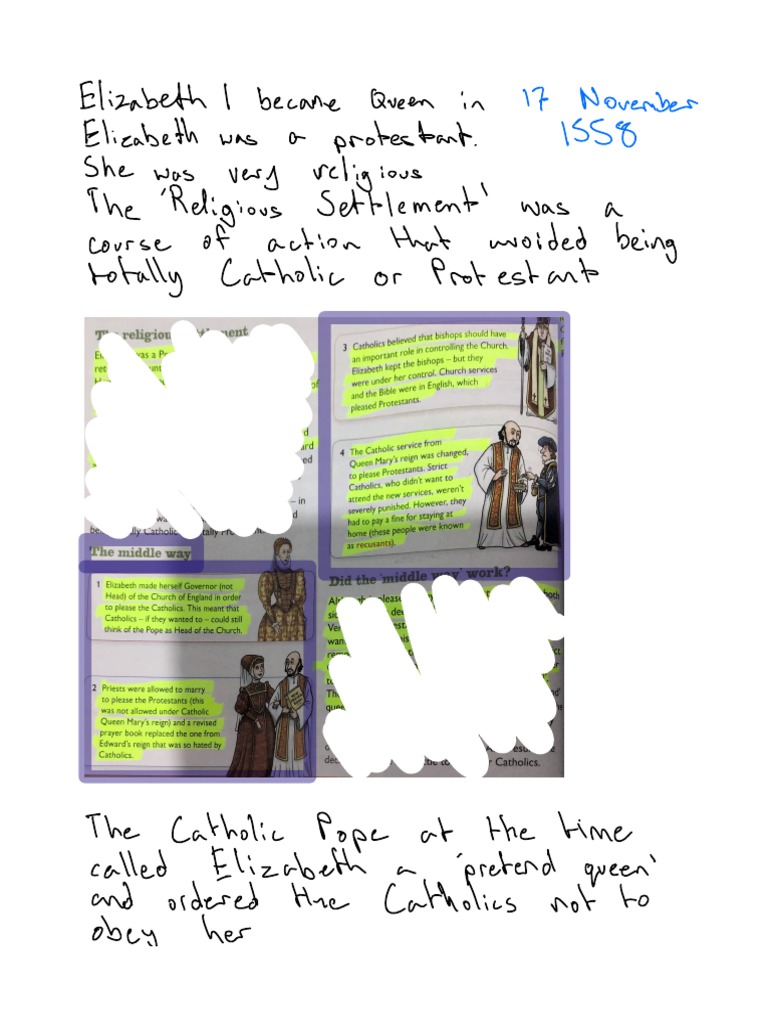 Elizabeth I became Queen in 17 November 1558
Elizabeth was a protestant.
She was very religious
The 'Religious Settlement' was a
course of action that avoided being
totally Catholic or Protestant
religious
3 Catholics believed that bishops should have
an important role in controlling the Church.
Elizabeth kept the bishops – but they
were under her control. Church services
and the Bible were in English, which
pleased Protestants.
4 The Catholic service from
Queen Mary's reign was changed,
to please Protestants. Strict
Catholics, who didn't want to
attend the new services, weren't
severely punished. However, they
had to pay a fine for staying at
home (these people were known
as recusants).
The middle way
1 Elizabeth made herself Governor (not
Head) of the Church of England in order
to please the Catholics. This meant that
Catholics – if they wanted to – could still
think of the Pope as Head of the Church.
2 Priests were allowed to marry
to please the Protestants (this
was not allowed under Catholic
Queen Mary's reign) and a revised
prayer book replaced the one from
Edward's reign that was so hated by
Catholics.
Did the 'middle way' work?
Catholics.
The Catholic Pope at the time
called Elizabeth a 'pretend queen'
and ordered the Catholics not to
obey her